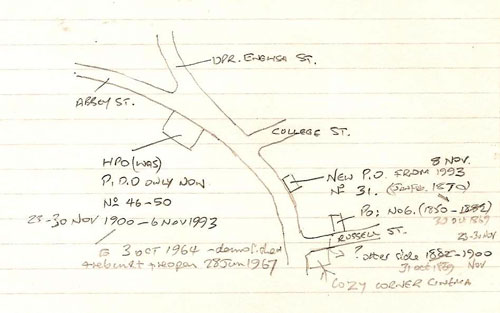 UPR. ENGLISH ST.
ABBEY ST.
COLLEGE ST.
HPO (WAS)
P.D.O ONLY NOW
Nº 46-50
23-30 NOV 1900 - 6 NOV 1993
3 OCT 1964 - demolished
& rebuilt & reopen 28 Jun 1967
8 NOV.
NEW P.O. FROM 1993
Nº 31.
PO; No 6. (1850 - 1882)
RUSSELL ST.
23-30 NOV
? other side 1882-1900
31 OCT Nov
COZY CORNER CINEMA